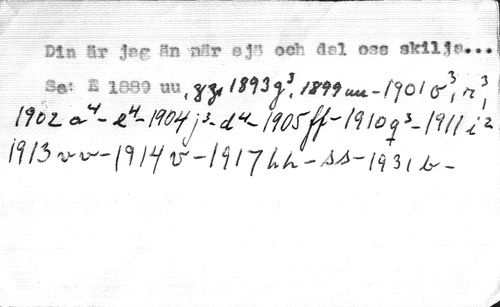 Din är jag än när sjö och dal oss skilja...
Se: E 1889 uu, zz, 1893 g³, 1899 uu - 1901 o³, r³,
1902 a⁴ - e⁴ - 1904 j³ - d⁴ - 1905 ff - 1910 q³ - 1911 i²
1913 vv - 1914 v - 1917 hh - ss - 1931 b -